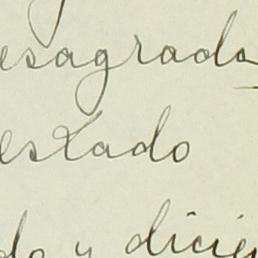 esagrada
estado
do y dicie